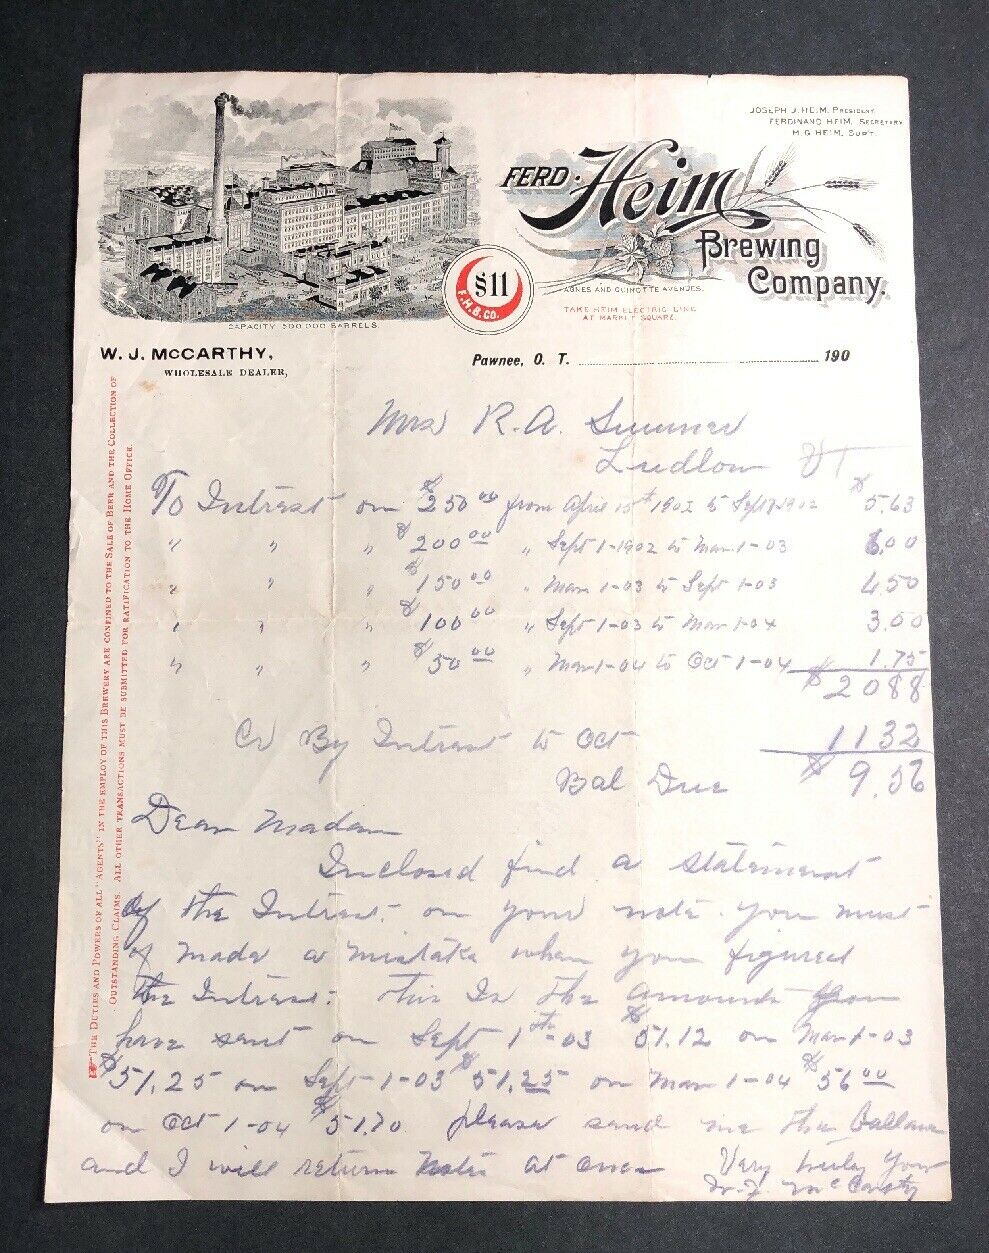 JOSEPH J. HEIM, PRESIDENT.
FERDINAND HEIM, SECRETARY.
M. G. HEIM, SUP'T.
FERD. Heim
Brewing
Company.
$11
F.H.B.CO.
AGNES AND GUINOTTE AVENUES.
TAKE HEIM ELECTRIC LINE
AT MARKET SQUARE.
CAPACITY 500 000 BARRELS.
W. J. McCARTHY,
WHOLESALE DEALER,
Pawnee, O. T. 190
"THE DUTIES AND POWERS OF ALL "AGENTS" IN THE EMPLOY OF THIS BREWERY ARE CONFINED TO THE SALE OF BEER AND THE COLLECTION OF
OUTSTANDING CLAIMS ALL OTHER TRANSACTIONS MUST BE SUBMITTED FOR RATIFICATION TO THE HOME OFFICE.
Mrs R. A. Sumner
Ludlow VT
To Intrest on $250.00 from April 15th 1902 to Sept 1-1902 $5.63
" " " $200.00 " Sept 1-1902 to Mar-1-03 6.00
" " " $150.00 " Mar-1-03 to Sept 1-03 4.50
" " " $100.00 " Sept 1-03 to Mar 1-04 3.00
" " " $50.00 " Mar-1-04 to Oct 1-04 1.75
$2088
Cr By Intrest to Oct 1132
Bal Due $9.56
Dear Madam
Inclosed find a statement
of the Intrest on your note. you must
of made a mistake when you figured
the Intrest. this Is the amounts you
have sent on Sept 1st-03 $51.12 on Mar-1-03
$51.25 on Sept-1-03 $51.25 on Mar 1-04 $56.00
on Oct 1-04 $51.70 please send me the Ballance
and I will return note at once Very truly your
W. J. McCarty